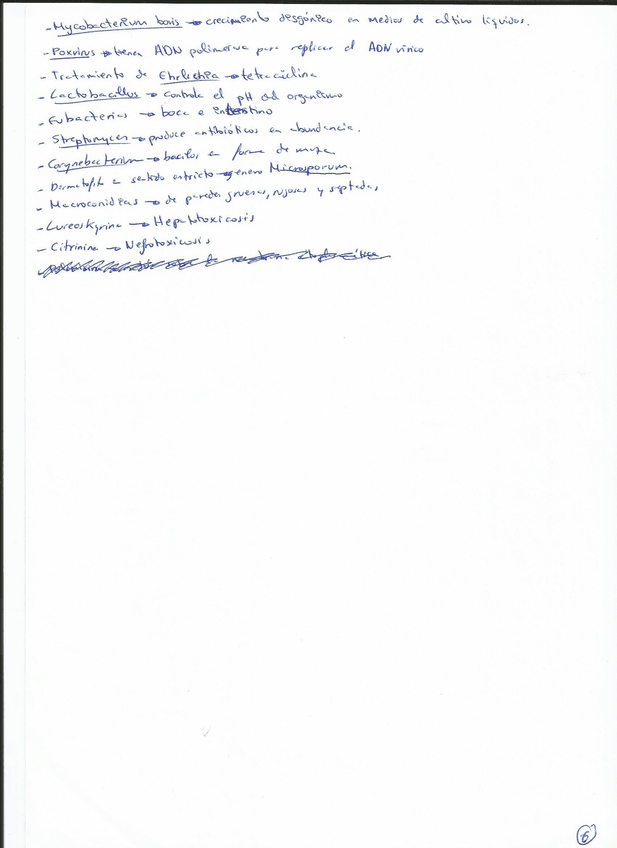 - Mycobacterium bovis → crecimiento disgónico en medios de cultivo líquidos.
- Poxvirus → tienen ADN polimerasa para replicar el ADN vírico
- Tratamiento de Ehrlichia → tetraciclina
- Lactobacillus → controla el pH del organismo
- Eubacterias → boca e intestino
- Streptomyces → produce antibióticos en abundancia.
- Corynebacterium → bacilos en forma de maza
- Dermatofito en sentido estricto → género Microsporum.
- Macroconidias → de paredes gruesas, rugosas y septadas
- Luteoskyrina → Hepatotoxicosis
- Citrinina → Nefrotoxicosis
6